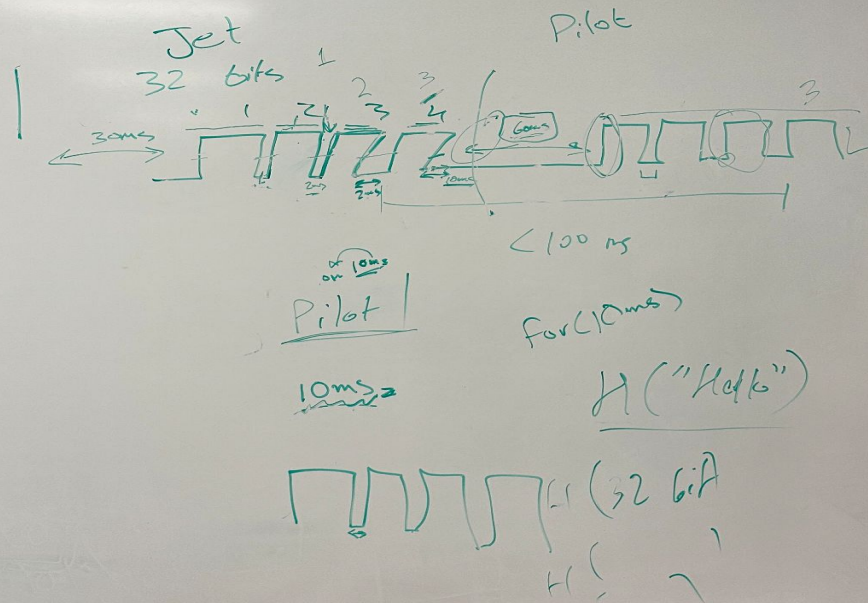 Jet
Pilot
32 bits
1
2
3
3
1
2
3
4
30ms
60ms
2ms
2ms
10ms
<100 ms
or 10ms
on
Pilot
for(10ms)
10ms
H("Hello")
H(32 bit
H(